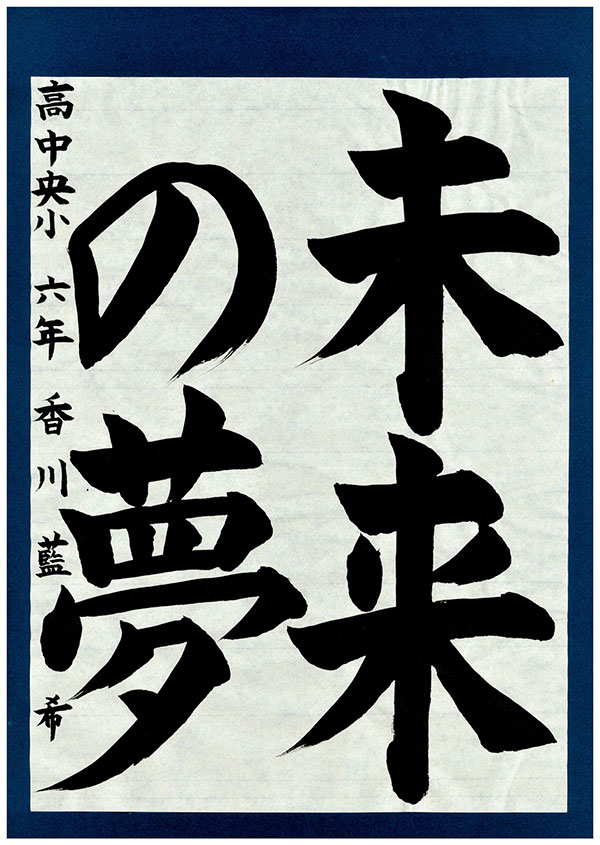 未来
の夢
高中央小 六年 香川 藍希